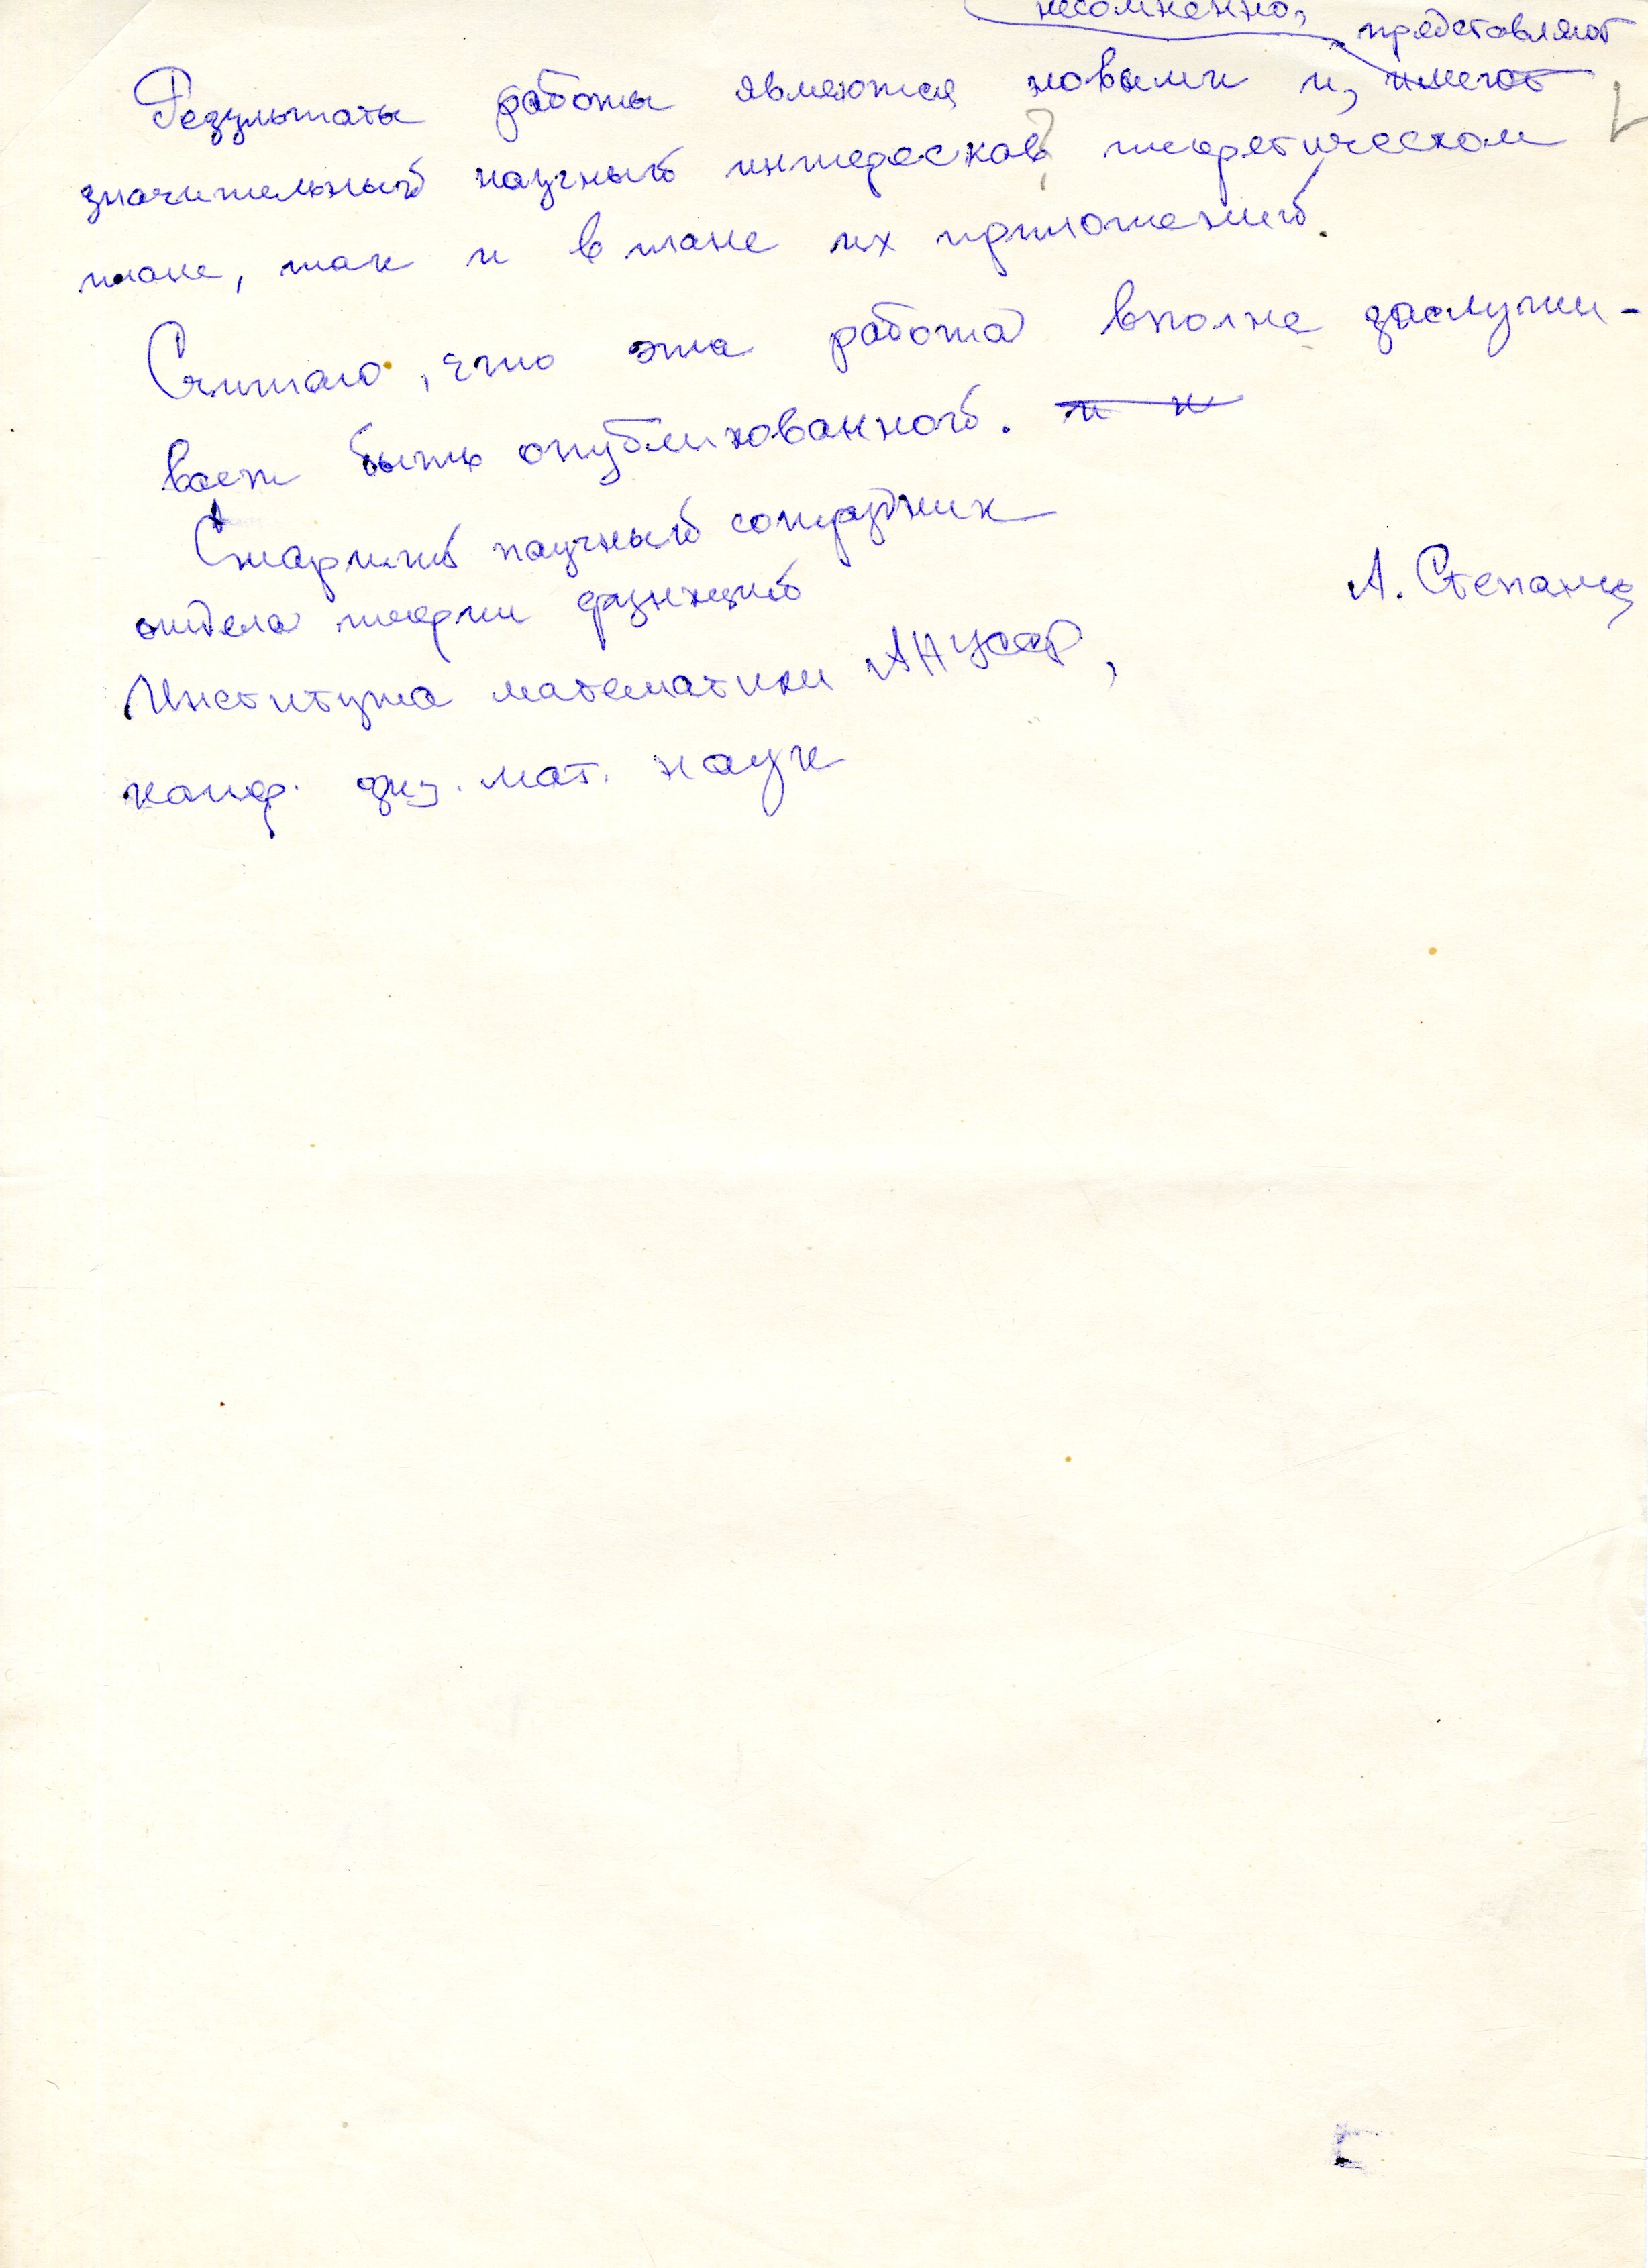 несомненно, представляют
Результаты работы являются новыми и, имеют
значительный научный интерес как в теоретическом
плане, так и в плане их приложений.
Считаю, что эта работа вполне заслужи-
вает быть опубликованной. и и
Старший научный сотрудник
отдела теории функций
А. Степанец
Института математики АН УССР,
канд. физ. мат. наук